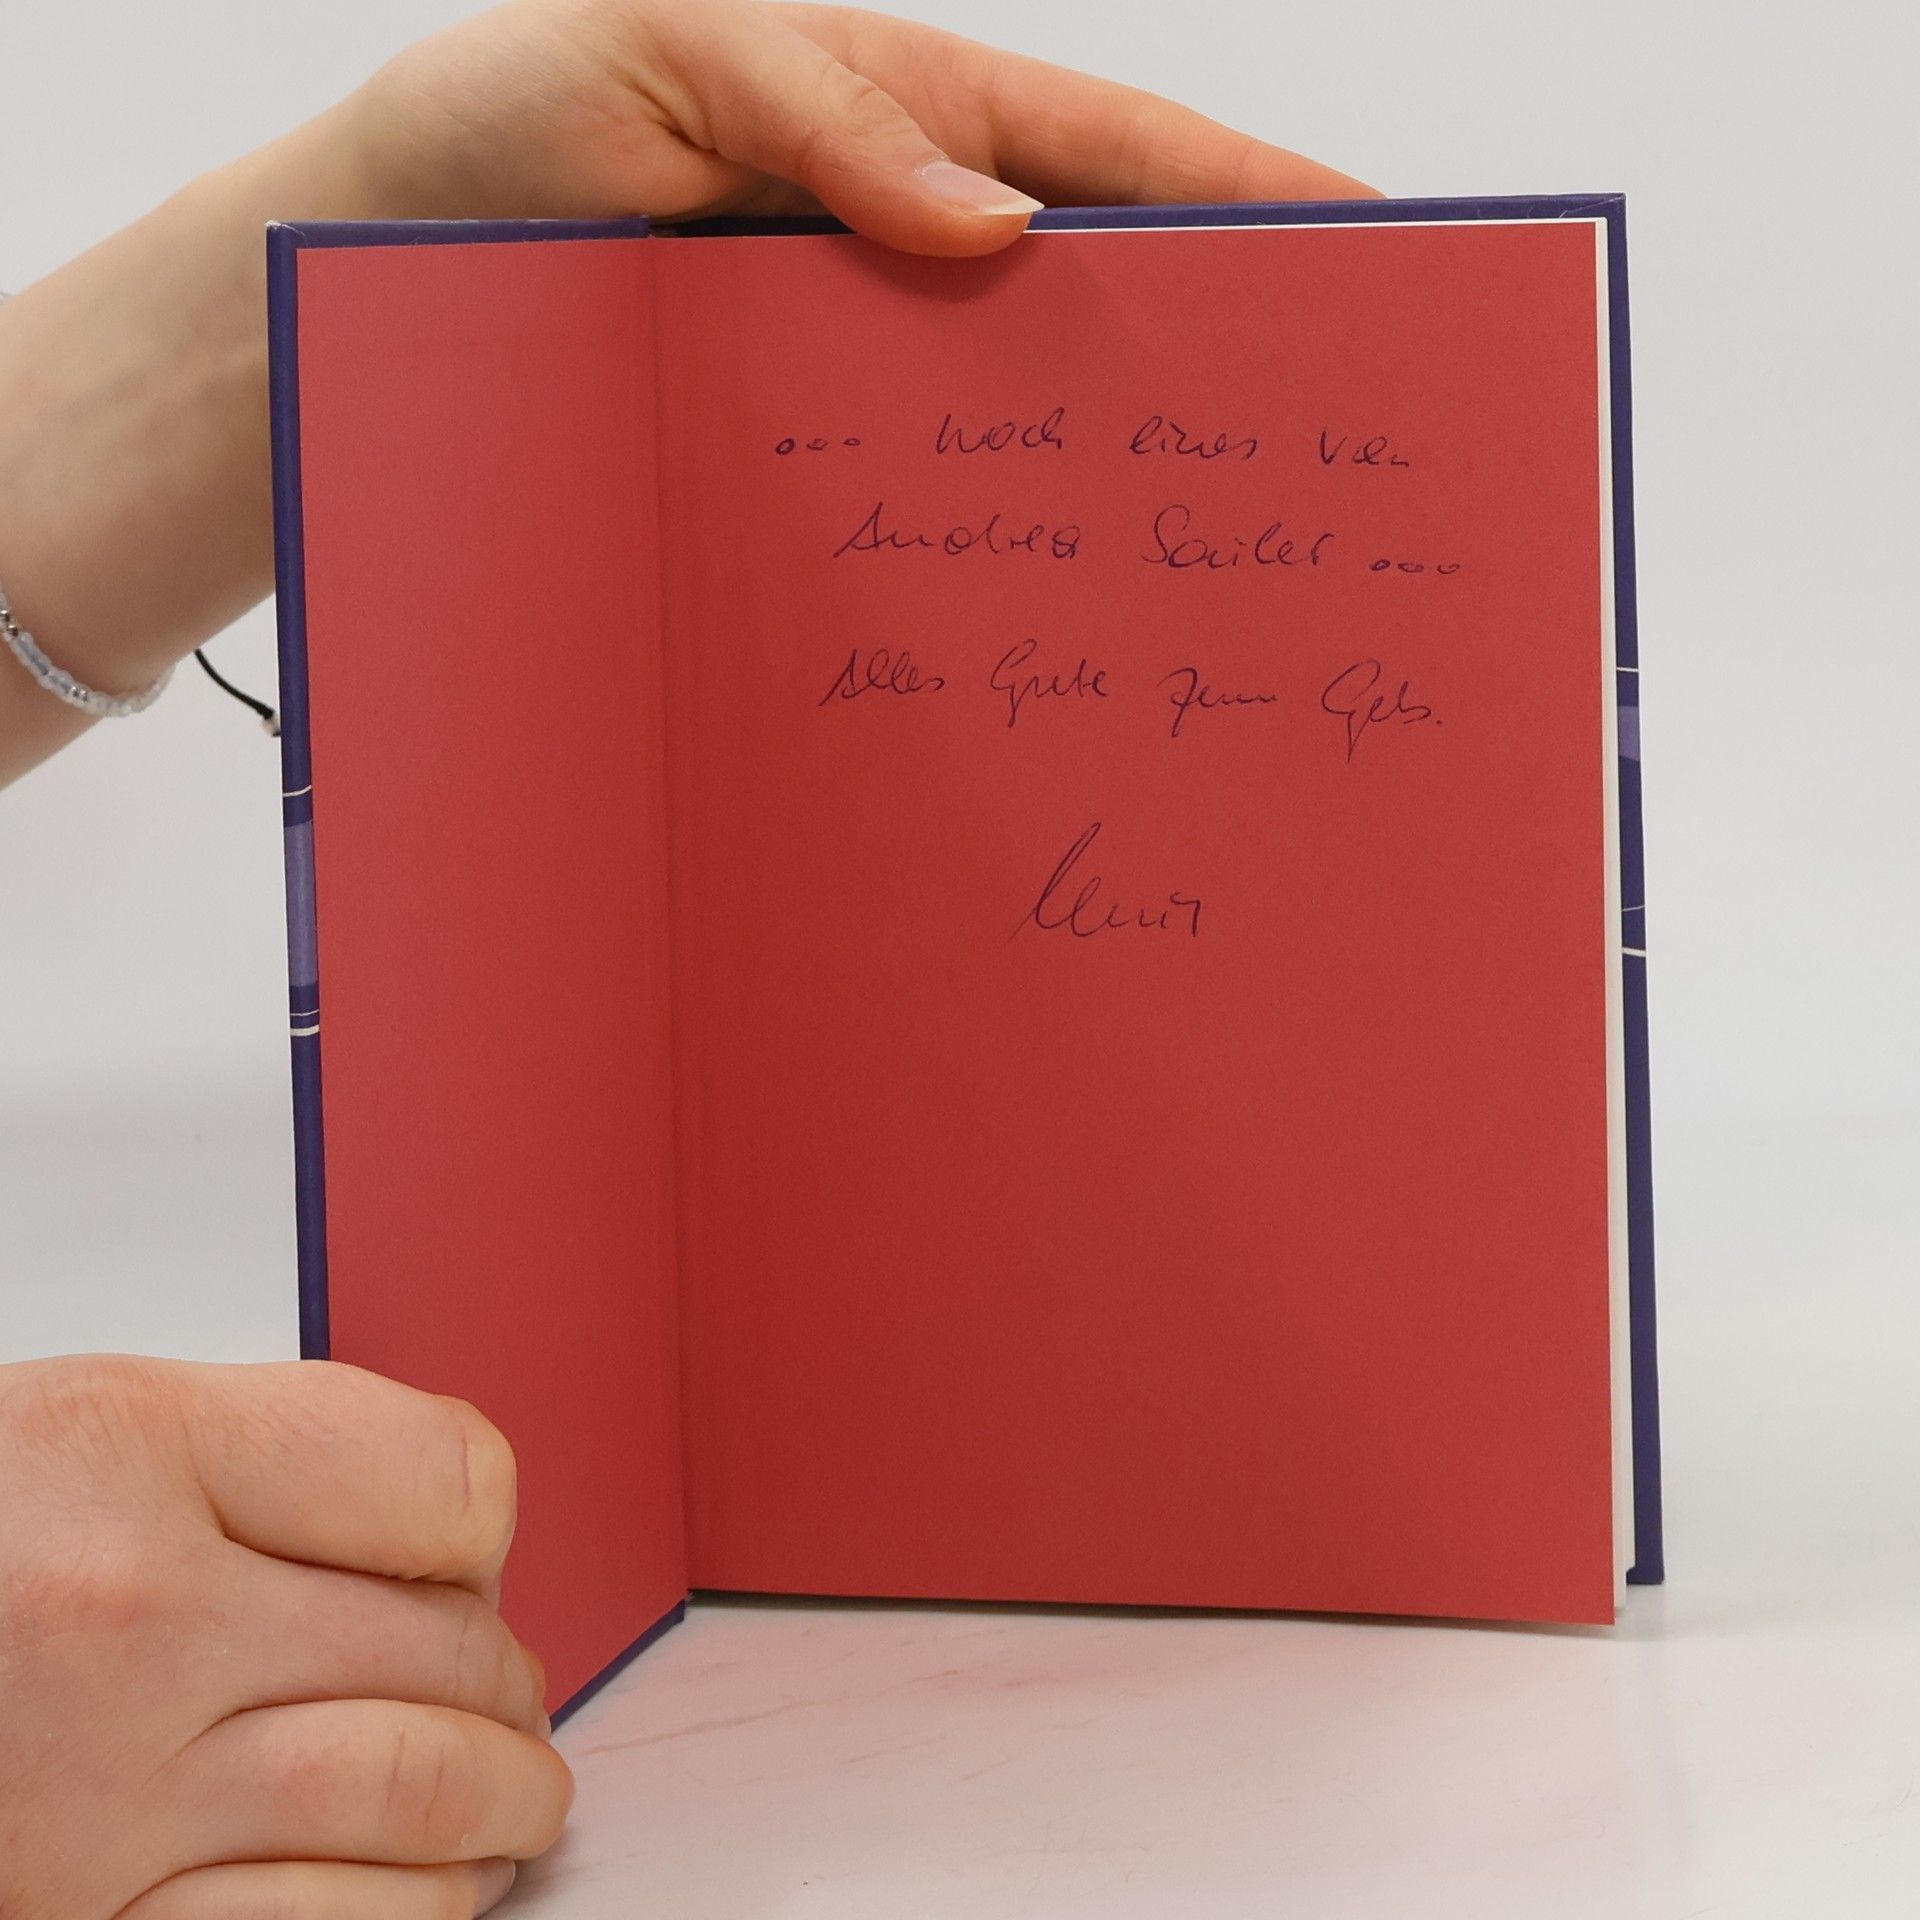 ... noch eines von
Andrea Sailer ...
Alles Gute zum Geb.